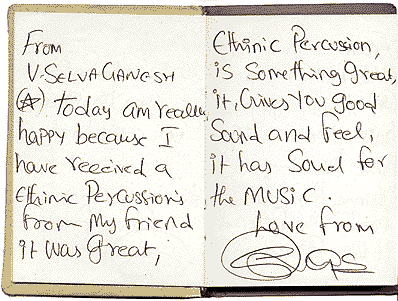 From
V-SELVAGANESH
today am really
happy because I
have received a
Ethinic Percussions
from my friend
it was great,
Ethinic Percussion,
is Something great,
it, Gives You good
Sound and Feel,
it has Soud for
the MUSIC.
Love from